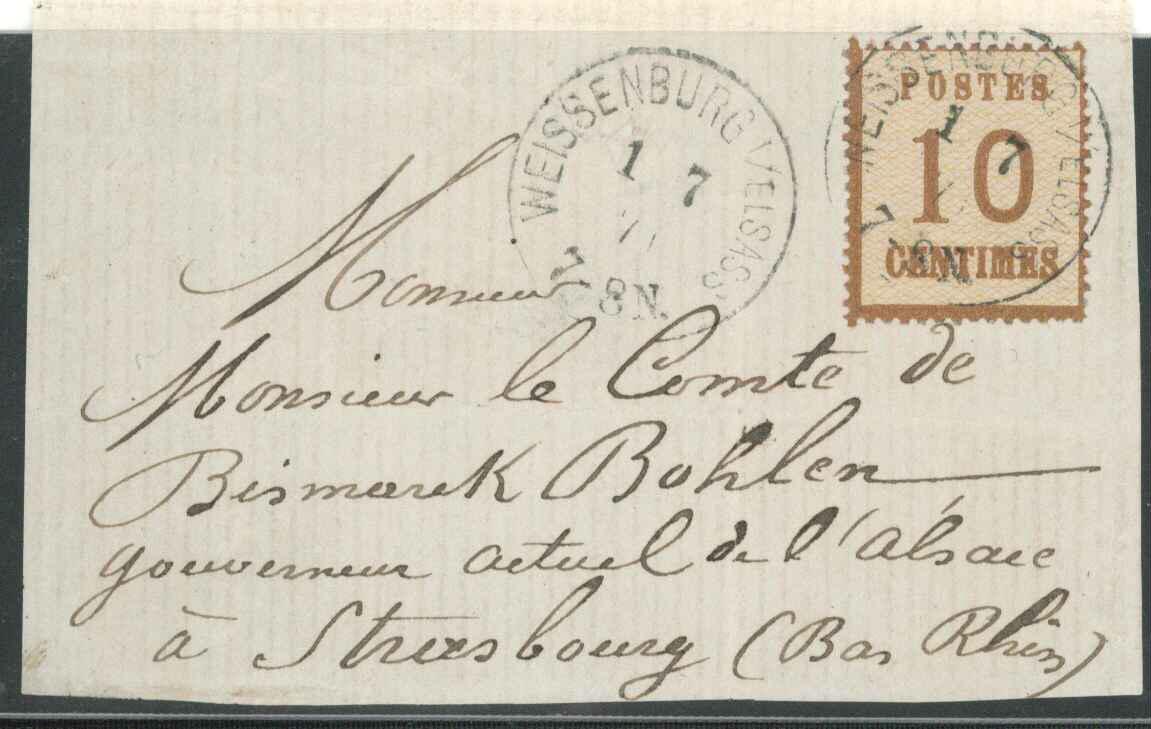 WEISSENBURG I/ELSASS
1 7
71
7-8N.
POSTES
10
CENTIMES
WEISSENBURG I/ELSASS
1 7
7 8N
Monsieur
Monsieur le Comte de
Bismarck Bohlen
gouverneur actuel de l'alsace
à Strasbourg (Bas Rhin)